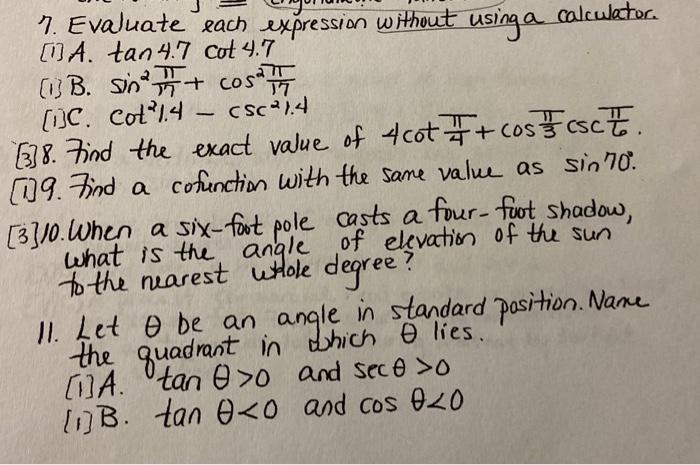 7. Evaluate each expression without using a calculator.
[1] A. tan 4.7 cot 4.7
[1] B. sin² π/17 + cos² π/17
[1] C. cot² 1.4 - csc² 1.4
[3] 8. Find the exact value of 4cot π/4 + cos π/3 csc π/6.
[1] 9. Find a cofunction with the same value as sin 70°.
[3] 10. When a six-foot pole casts a four-foot shadow,
what is the angle of elevation of the sun
to the nearest whole degree?
11. Let θ be an angle in standard position. Name
the quadrant in which θ lies.
[1] A. tan θ>0 and sec θ >0
[1] B. tan θ<0 and cos θ<0